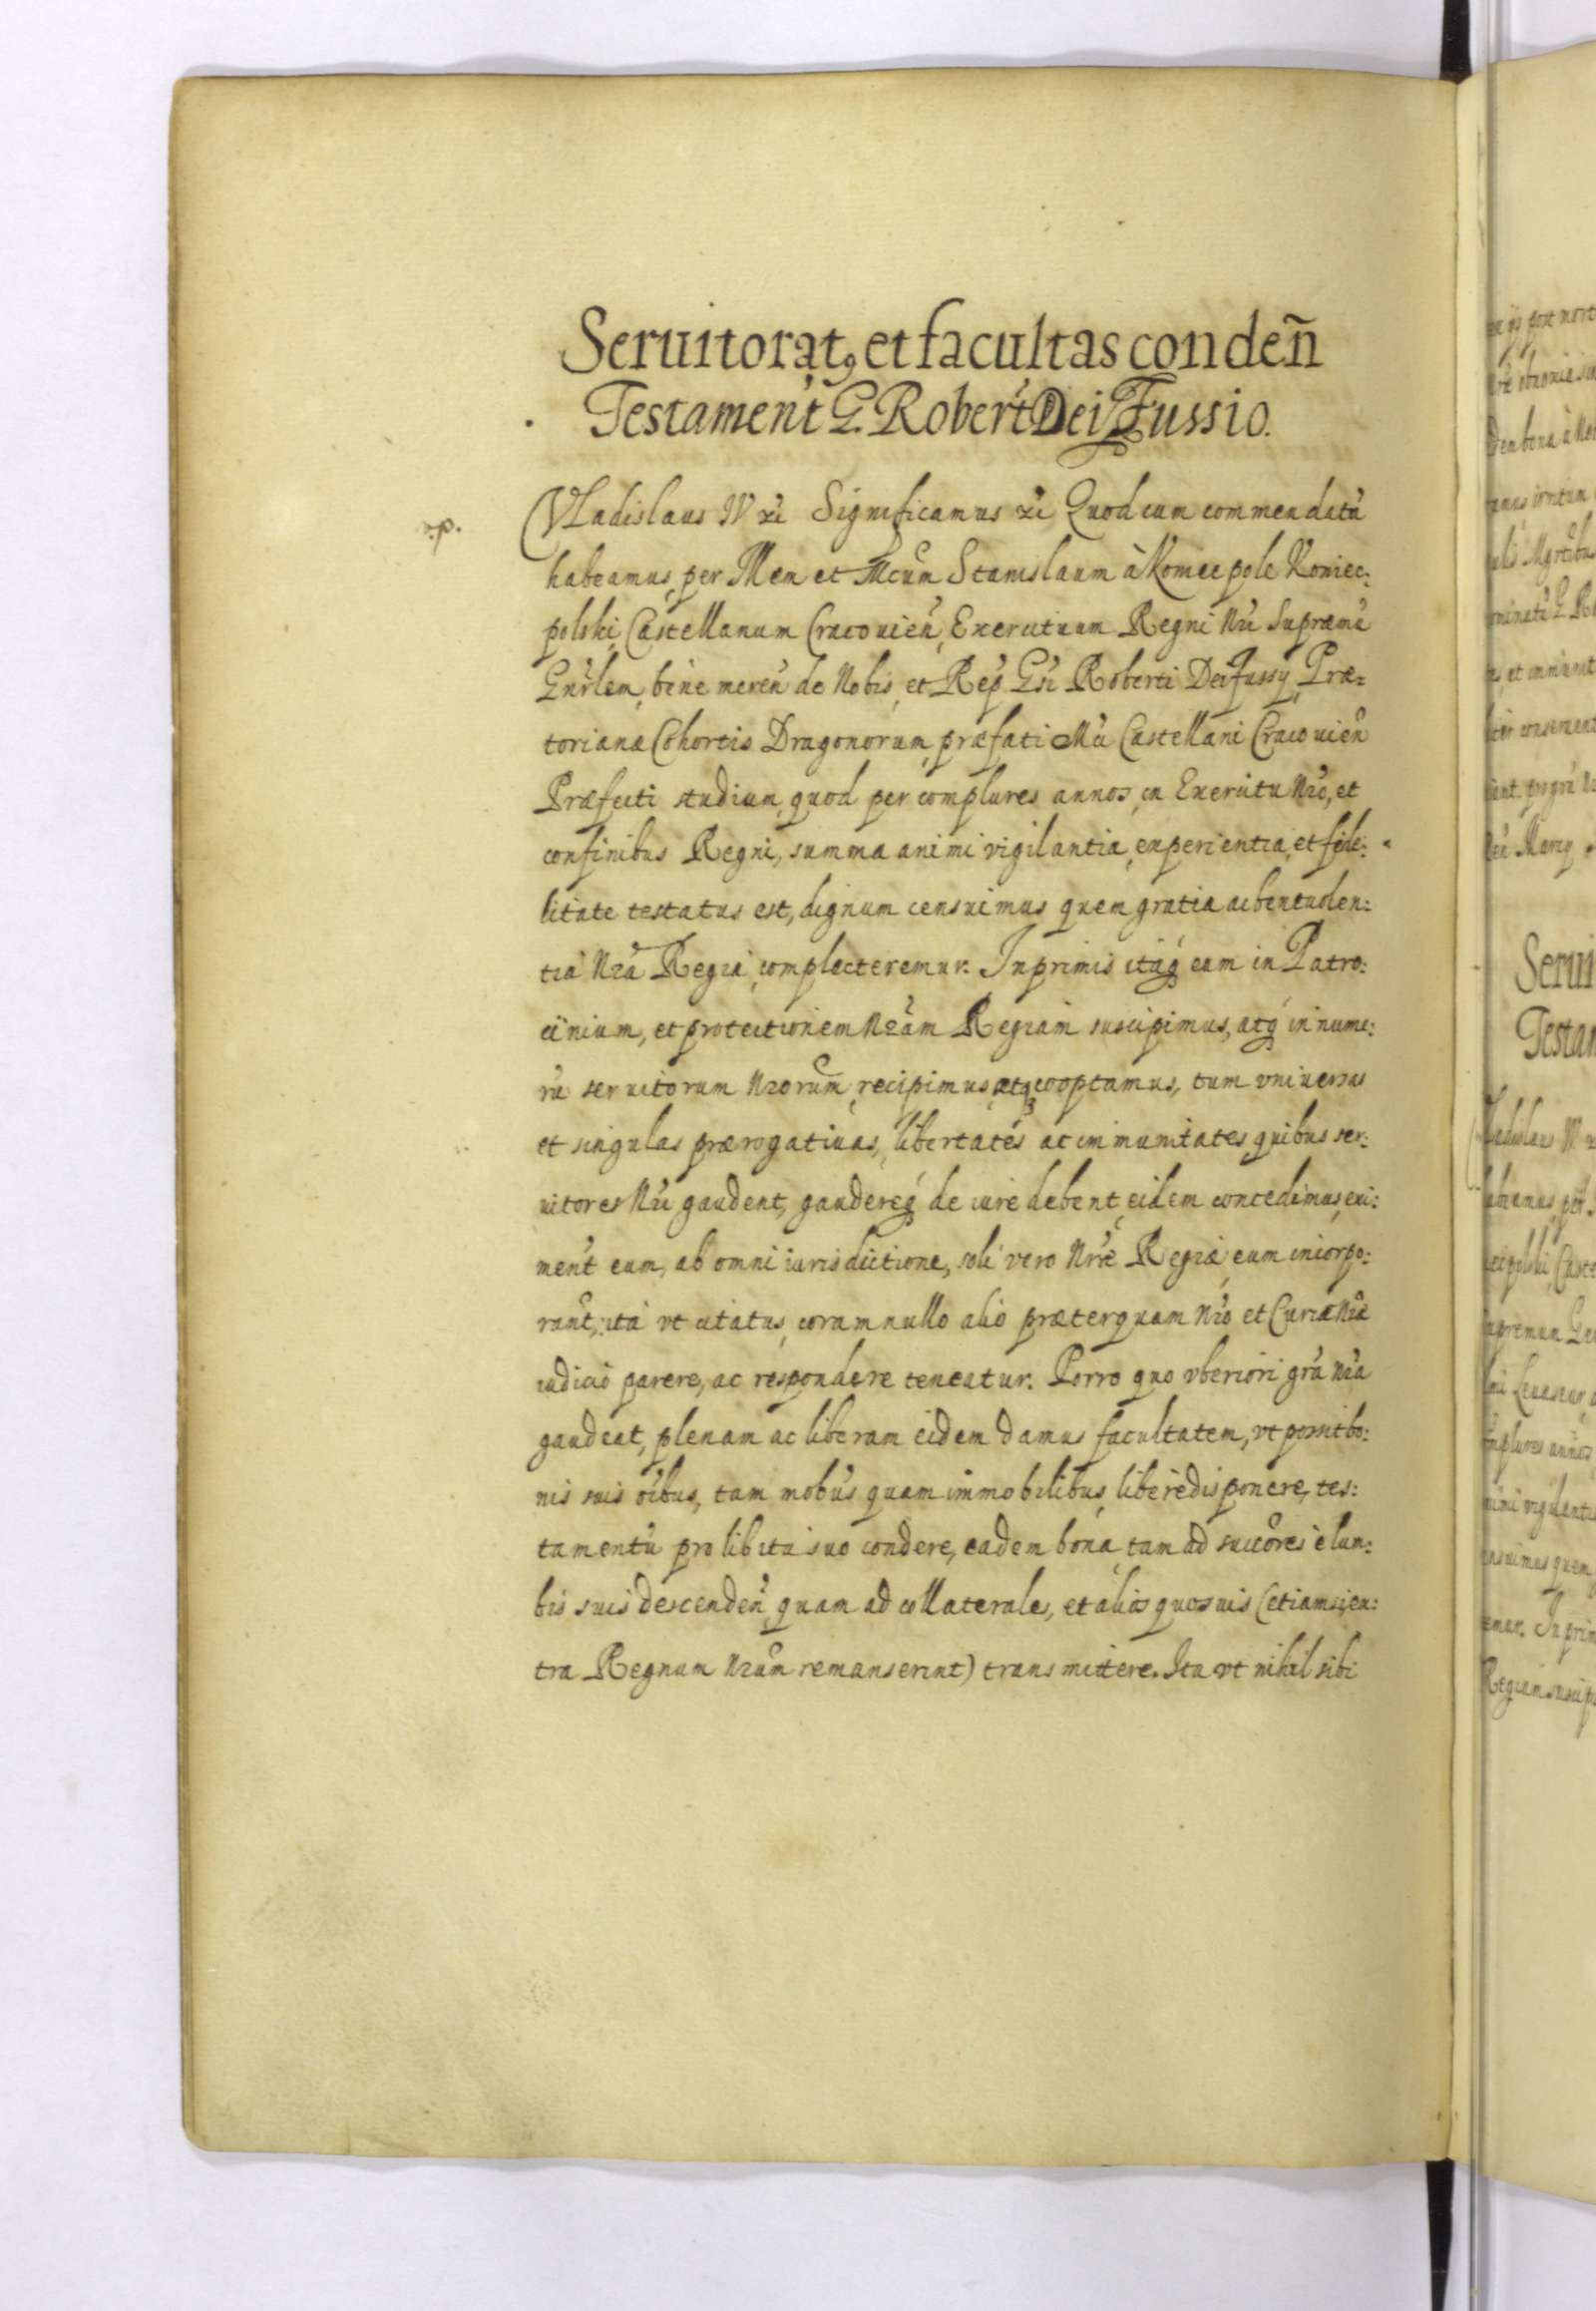 Seruitorat9 et facultas condeñ
Testament G. Robert Dei Fussio.
r.p.
Vladislaus IV xi Significamus xi Quod cum commendatũ
habeamus, per Illem et Mcum Stanislaum à Koniecpole Koniec:
polski, Castellanum Cracouien, Exercituum Regni Nri Supremũ
Gnrlem, bene meren de Nobis, et Rep Gsi Roberti Dei Fussy, Præ=
torianæ Cohortis Dragonorum, præfati Mci Castellani Cracouien
Præfecti studium, quod per complures annos, in Exercitu Nro, et
confinibus Regni, summa animi vigilantia, experientia, et fide:
litate testatus est, dignum censuimus quem gratia ac beneuolen:
tia Nra Regia, complecteremur. Inprimis itaq eum in Patro:
cinium, et protectionem Nram Regiam suscipimus, atq in nume:
rũ seruitorum Nrorum, recipimus atq cooptamus, tum vniuersas
et singulas prærogatiuas, libertates ac immunitates, quibus ser:
uitores Nri gaudent, gaudereq de iure debent, eidem concedimus, exi:
ment eum, ab omni iurisdictione, soli vero Nræ Regiæ, eum incorpo:
rant, ita vt citatus, coram nullo alio præterquam Nro et Curiæ Nræ
iudicio parere, ac respondere teneatur. Porro quo vberiori gra Nra
gaudeat, plenam ac liberam eidem damus facultatem, vt possit bo:
nis suis oibus, tam mobus quam immobilibus, liberè disponere, tes:
tamentũ pro libitu suo condere, eadem bona, tam ad succores è lum:
bis suis descenden, quam ad collaterales, et alios quosuis (etiamsi ex:
tra Regnum Nrum remanserint) transmittere. Ita vt nihil sibi